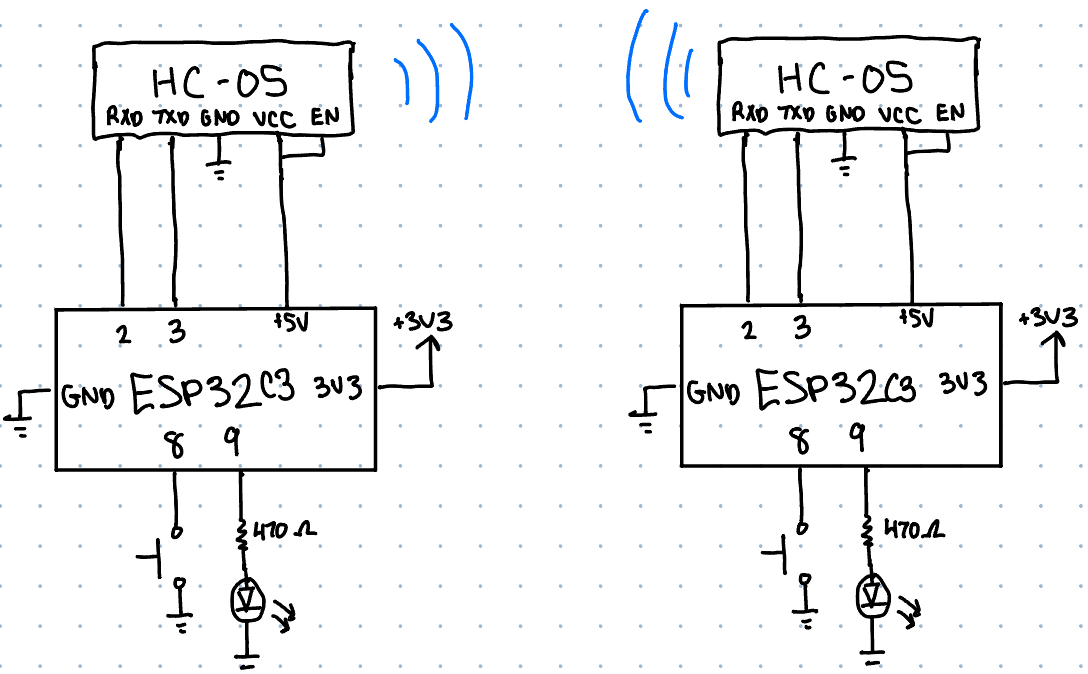 HC-05
RXD TXD GND VCC EN
2 3 +5V
+3V3
GND ESP32C3 3V3
8 9
470Ω
HC-05
RXD TXD GND VCC EN
2 3 +5V
+3V3
GND ESP32C3 3V3
8 9
470Ω